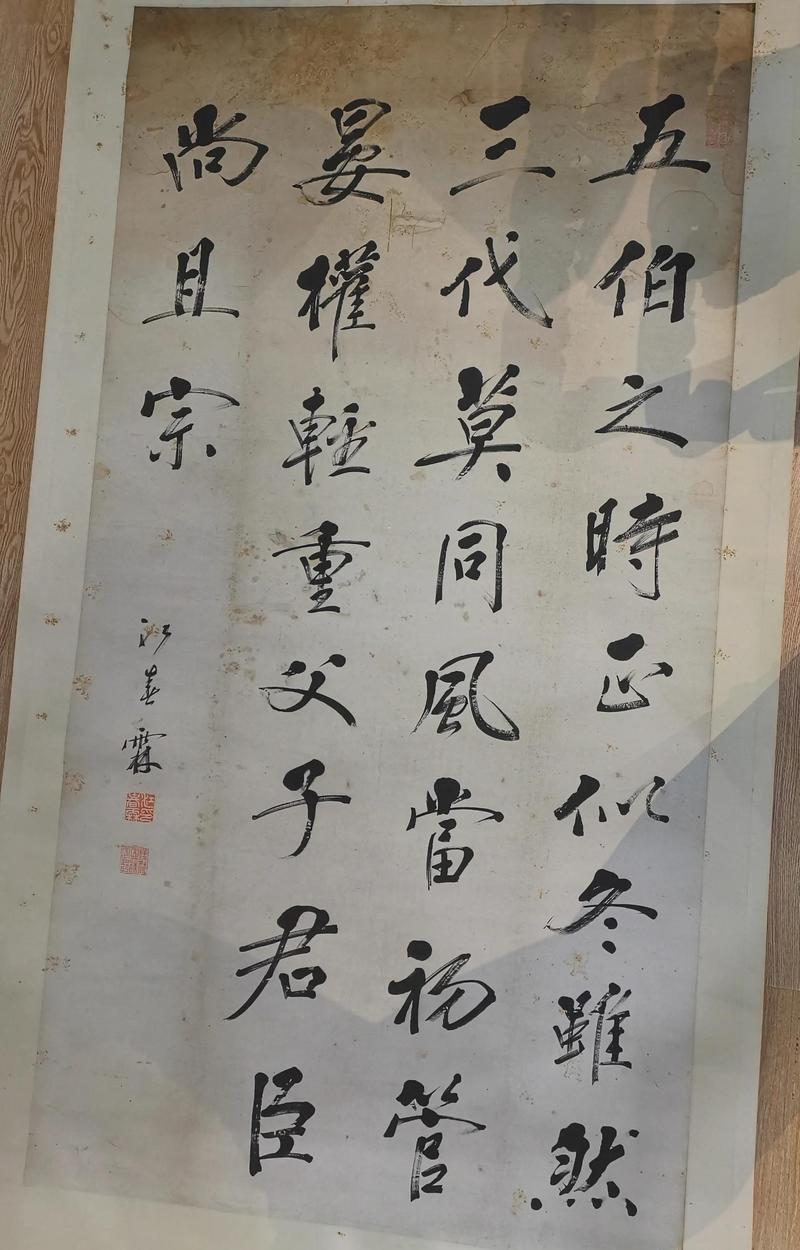 五伯之時正似冬雖然
三代莫同風當初管
晏權輕重父子君臣
尚且宗
江春霖